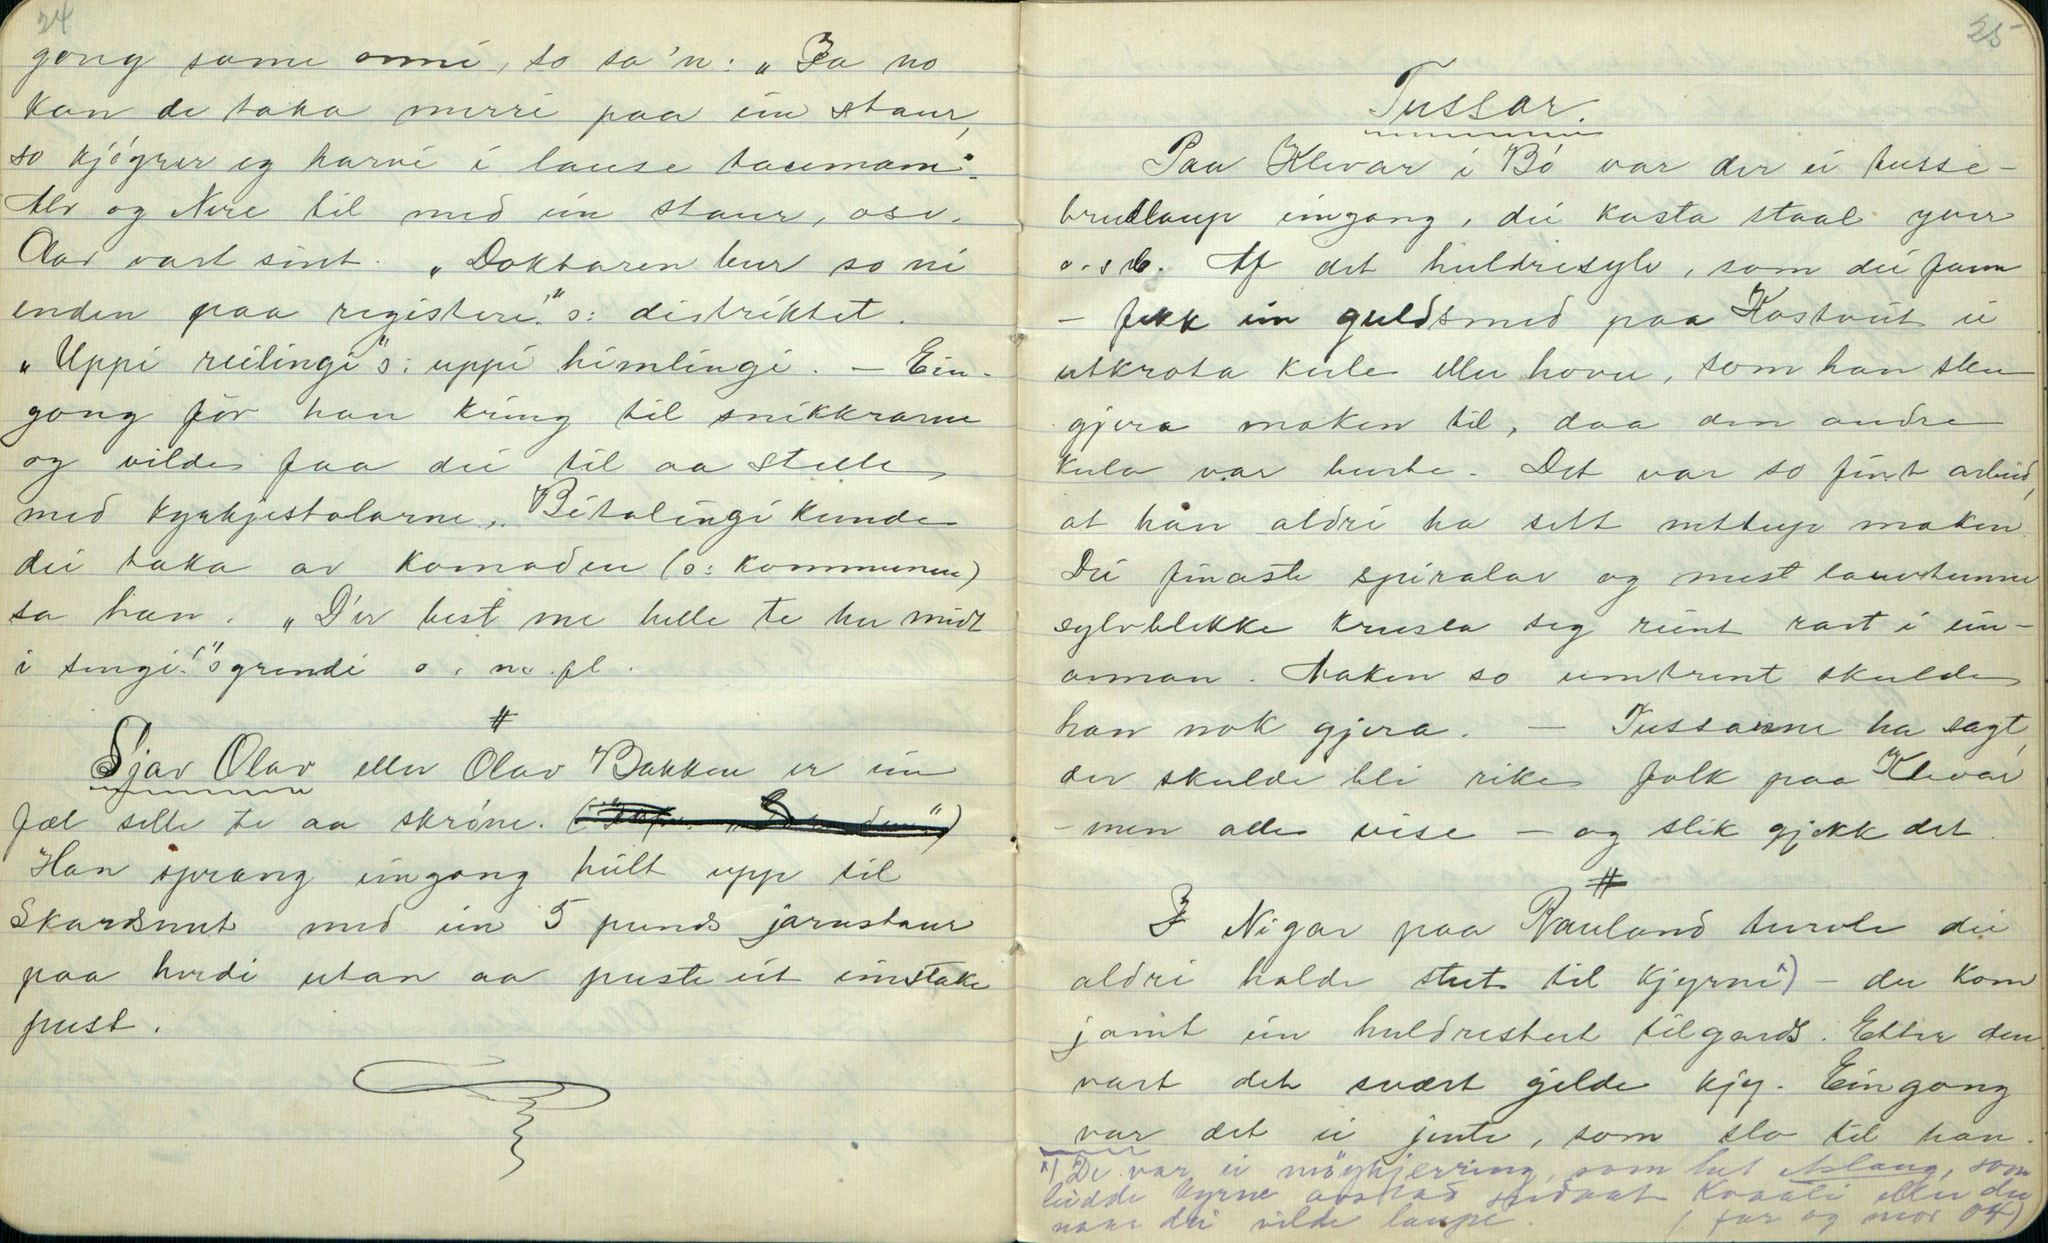 24
gong same onni, so sa'n: „Ja no
kan de taka merri paa ein staur,
so kjøyrer eg harvi i lause taumam".
Alv og Nere til med ein staur, osv.
Olav vart sint. „Doktaren bur so ni
enden paa registeri!" ɔ: distriktet.
„Uppi reilingi" ɔ: uppi himlingi. – Ein-
gong fór han kring til snikkrarne
og vilde faa dei til aa stelle
med kyrkjestolarne. „Betalingi kunde
dei taka av komoden (ɔ: kommunen)
sa han. „D'er best me helle te her midt
i sengi!" ɔ grendi o. m. fl.
#
Sjav Olav eller Olav Bakken er ein
fæl selle te aa skrøne.
Han sprang eingong heilt upp til
Skardsnut med ein 5 punds jarnstaur
paa herdi utan aa puste eit einstake
pust.
25
Tussar.
Paa Klevar i Bø var der ei tusse-
brudlaup eingong, dei kasta staal yver
o.s.b. Af det huldresylv, som dei fann
– fekk ein guldsmed paa Kostveit ei
utkrota kule eller hovu, som han sku
gjera maken til, daa den andre
kula var burte. Det var so fint arbeid,
at han aldri ha sett nettup maken.
Dei finaste spiralar og mest lauvtunne
sylvblekke krusla seg reint rart i ein-
annan. Maken so umtrent skulde
han nok gjera. – Tussanne ha sagt,
der skulde bli rike folk paa Klevar
– men alle vise – og slik gjekk det.
#
I Nigar paa Rauland turvte dei
aldri halde stut til kjyrne x) – der kom
jamt ein huldrestut tilgards. Etter den
vart det svært gjilde kjy. Eingong
var det ei jente, som slo til han.
x) De var ei møykjerring, som het Aslaug, som
leidde kyrne avstad Kvaali eller der
naar dei vilde laupe. (far og mor OH)